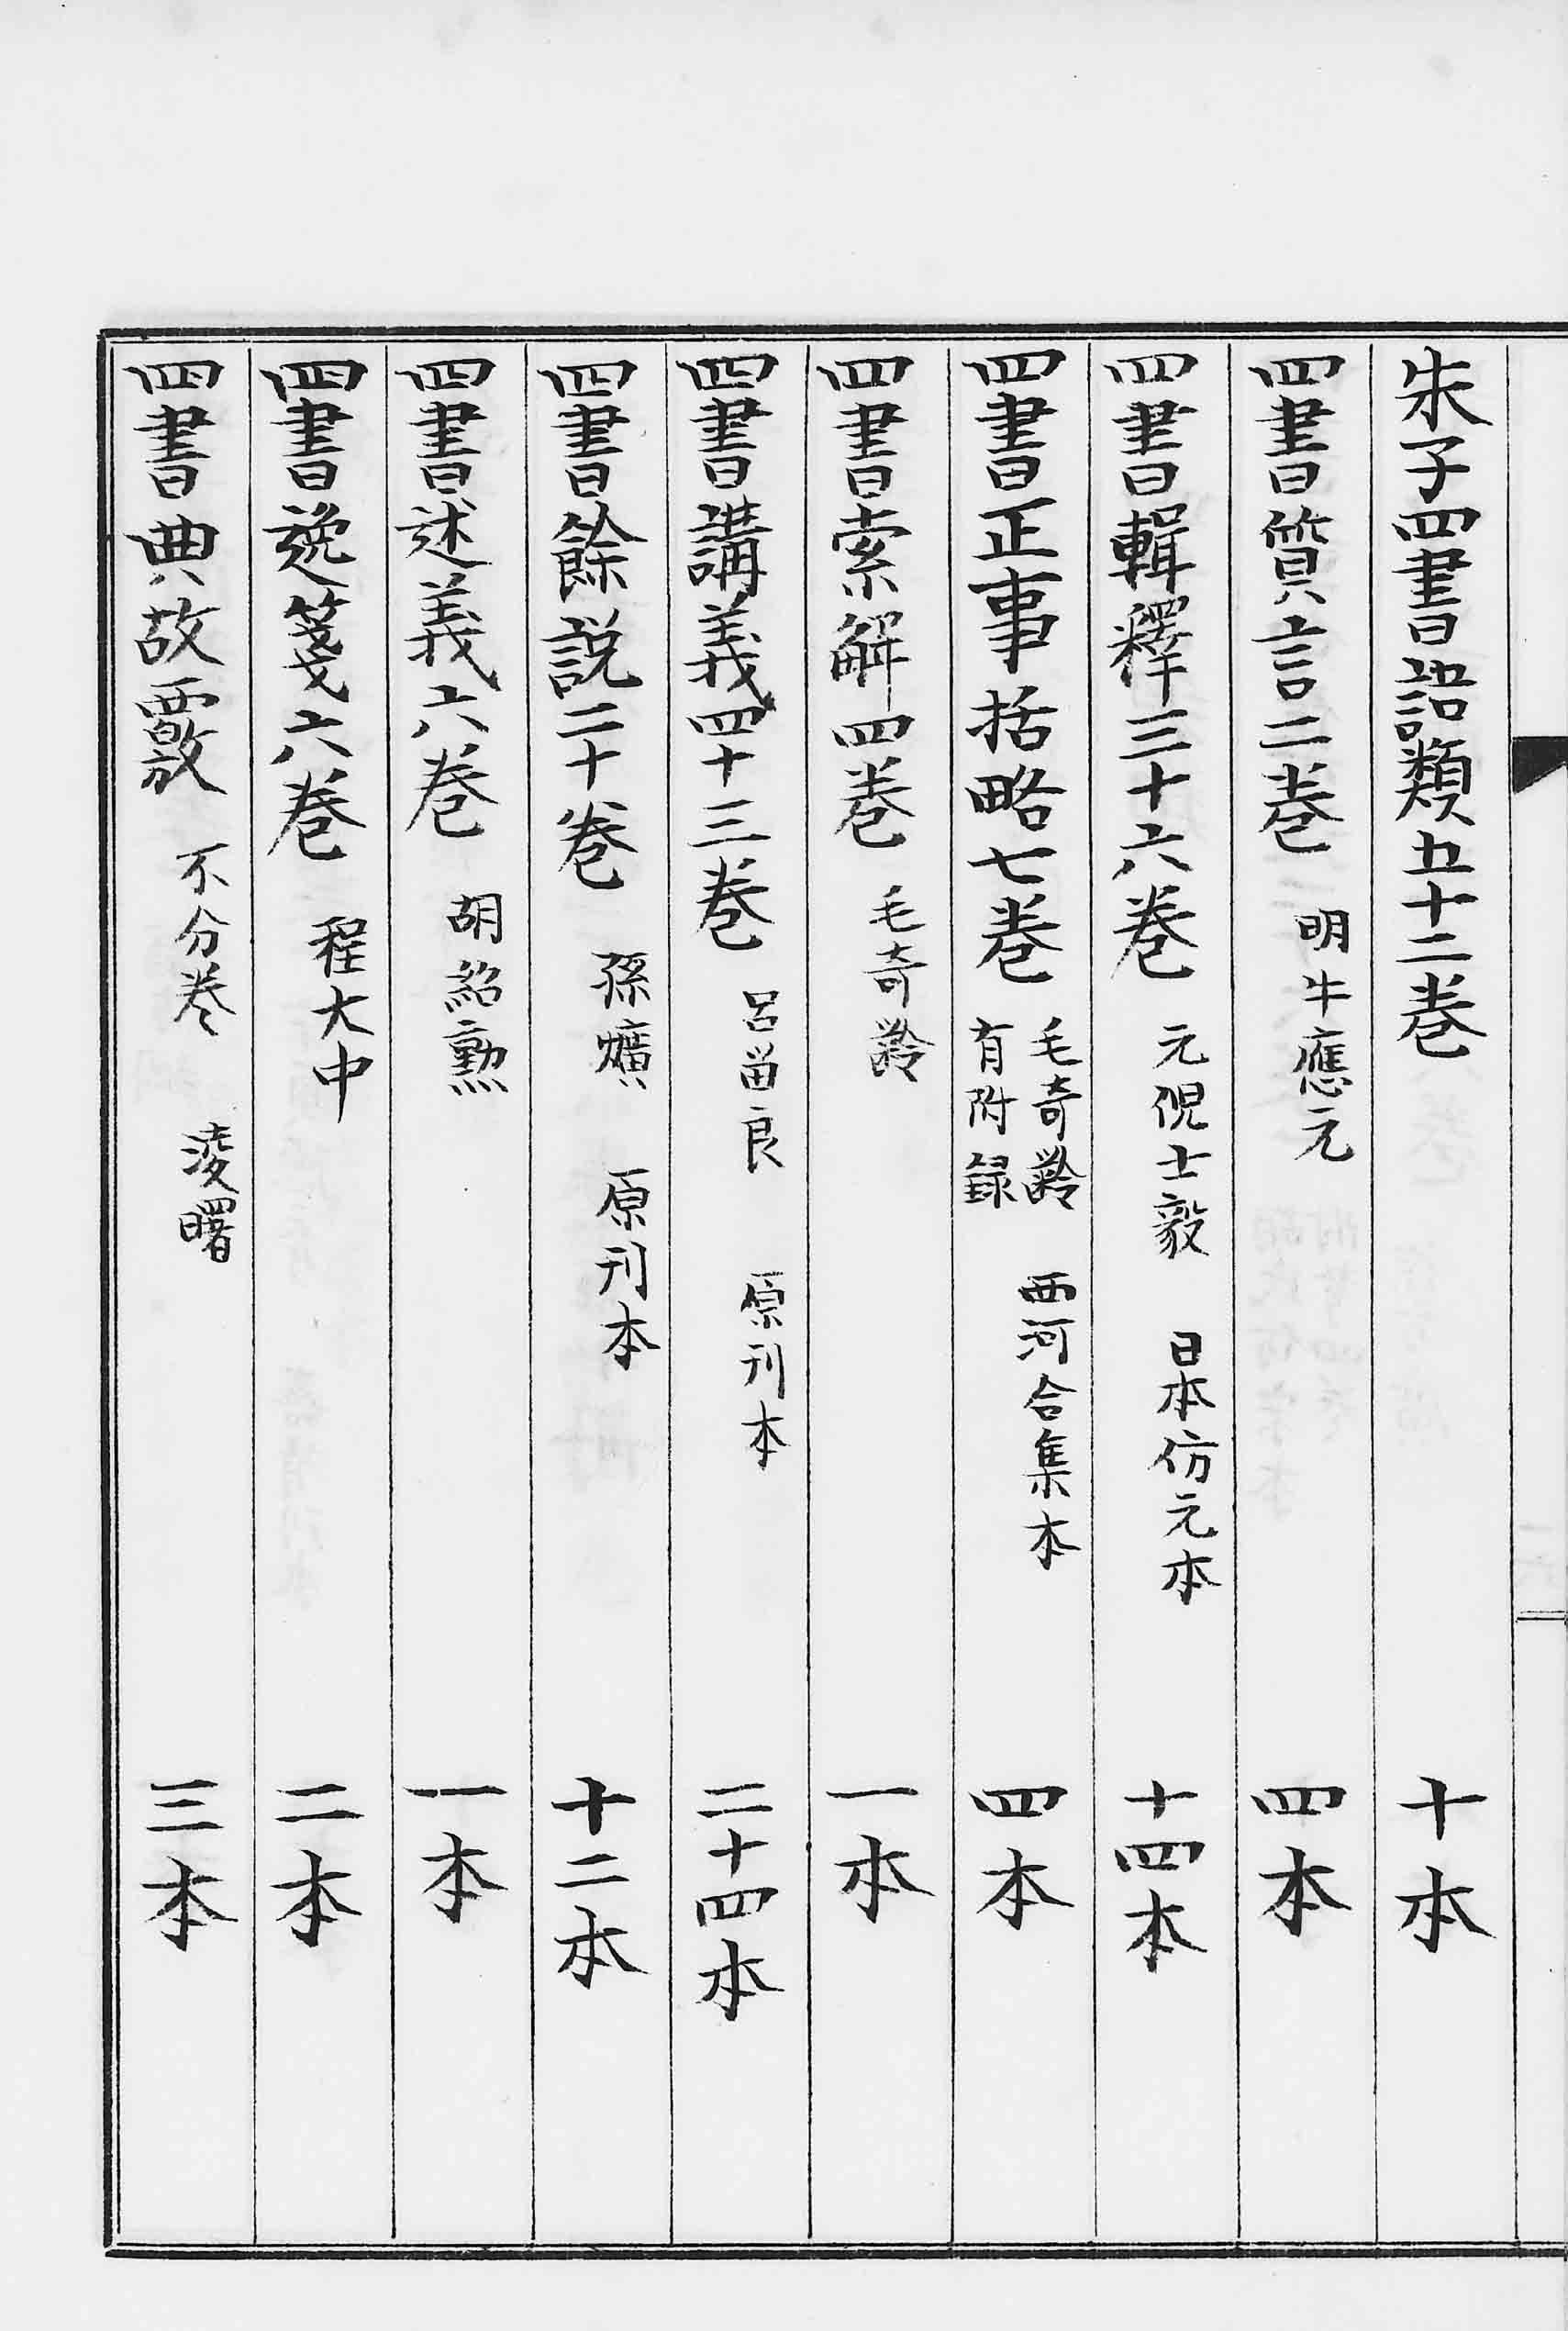 朱子四書語類五十二卷 十本
四書質言二卷 明牛應元 四本
四書輯釋三十六卷 元倪士毅 日本仿元本 十四本
四書正事括略七卷 毛奇齡 有附録 西河合集本 四本
四書索解四卷 毛奇齡 一本
四書講義四十三卷 呂畱良 原刊本 二十四本
四書餘説二十卷 孫爌 原刊本 十二本
四書述義六卷 胡紹勲 一本
四書逸箋六卷 程大中 二本
四書典故覈 不分卷 淩曙 三本